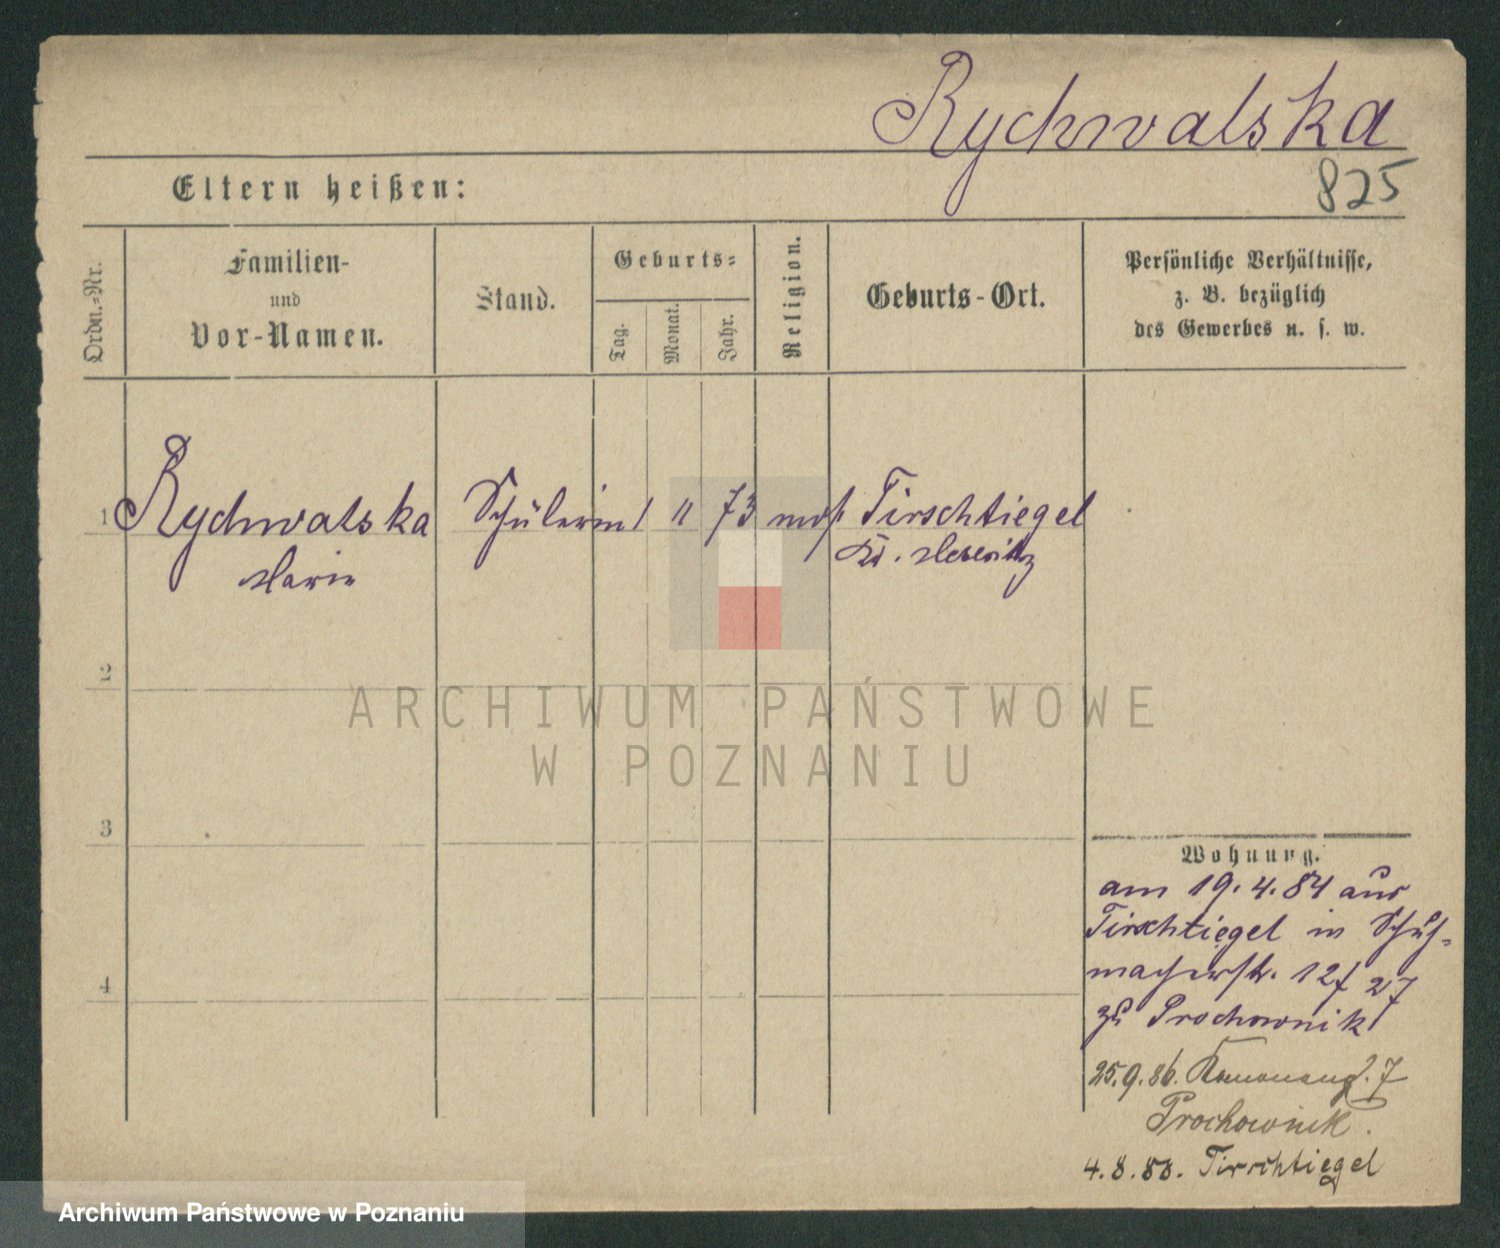 Rychwalska
825
Eltern heißen:
Ordn.=Nr.
Familien-
und
Vor-Namen.
Stand.
Geburts=
Tag.
Monat.
Jahr.
Religion.
Geburts-Ort.
Persönliche Verhältnisse,
z. B. bezüglich
des Gewerbes u. s. w.
1 Rychwalska Schülerin 1 11 73 mos. Tirschtiegel
Marie Kr. Meseritz
2
3
4
ARCHIWUM PAŃSTWOWE
W POZNANIU
Wohnung.
am 19.4.84 aus
Tirschtiegel in Schuh=
macherstr. 12/ 27
zu Prochownik
25.9.86. 7
Prochownik.
4.8.88. Tirschtiegel
Archiwum Państwowe w Poznaniu